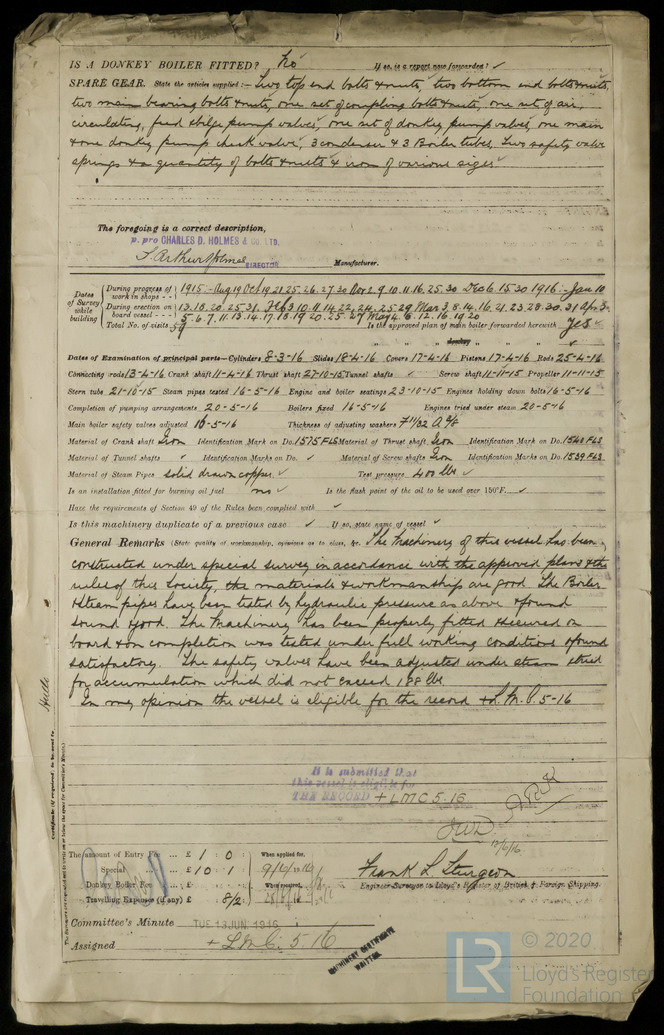 IS A DONKEY BOILER FITTED? No If so, is a report now forwarded? ✓
SPARE GEAR. State the articles supplied:— Two top end bolts & nuts, two bottom end bolts & nuts,
two main bearing bolts & nuts, one set of coupling bolts & nuts, one set of air,
circulating, feed & bilge pump valves, one set of donkey pump valves, one main
& one donkey pump check valve, 3 condenser & 3 Boiler tubes, Two safety valve
springs & a quantity of bolts & nuts & iron of various sizes
The foregoing is a correct description,
p. pro CHARLES D. HOLMES & CO. LTD.
DIRECTOR Manufacturer.
Dates of Survey while building
During progress of work in shops - - 1915:- Aug 19 Oct 19 21 25. 26. 27. 30 Nov 2. 9. 10. 11. 16. 25. 30 Dec 6. 15. 30 1916:- Jan 10
During erection on board vessel - - - 13. 18. 20. 25. 31. Feb 3. 10. 11. 14. 22. 24. 25. 29 Mar 3. 8. 14. 16. 21. 23. 28. 30. 31 Apr 3.
5. 6. 7. 11. 13. 14. 17. 18. 19 20. 25. 27 May 4. 8. 12. 16. 19 20
Total No. of visits 59 Is the approved plan of main boiler forwarded herewith Yes
" " donkey " " "
Dates of Examination of principal parts—Cylinders 8-3-16 Slides 18-4-16 Covers 17-4-16 Pistons 17-4-16 Rods 25-4-16
Connecting rods 13-4-16 Crank shaft 11-4-16 Thrust shaft 27-10-15 Tunnel shafts ✓ Screw shaft 11-11-15 Propeller 11-11-15
Stern tube 21-10-15 Steam pipes tested 16-5-16 Engine and boiler seatings 23-10-15 Engines holding down bolts 16-5-16
Completion of pumping arrangements 20-5-16 Boilers fixed 16-5-16 Engines tried under steam 20-5-16
Main boiler safety valves adjusted 16-5-16 Thickness of adjusting washers
Material of Crank shaft Iron Identification Mark on Do. 1575 FLS Material of Thrust shaft Iron Identification Mark on Do. 1540 FLS
Material of Tunnel shafts ✓ Identification Marks on Do. ✓ Material of Screw shafts Iron Identification Marks on Do. 1539 FLS
Material of Steam Pipes solid drawn copper ✓ Test pressure 400 lbs ✓
Is an installation fitted for burning oil fuel no ✓ Is the flash point of the oil to be used over 150°F. ✓
Have the requirements of Section 49 of the Rules been complied with ✓
Is this machinery duplicate of a previous case ✓ If so, state name of vessel ✓
General Remarks (State quality of workmanship, opinions as to class, &c. The Machinery of this vessel has been
constructed under special survey in accordance with the approved plans & the
rules of this Society, the materials & workmanship are good. The Boiler
& steam pipes have been tested by hydraulic pressure as above & found
sound & good. The Machinery has been properly fitted & secured on
board & on completion was tested under full working conditions & found
satisfactory. The safety valves have been adjusted under steam & tried
for accumulation which did not exceed 188 lbs
In my opinion the vessel is eligible for the record + L.M.C. 5-16
Hull
Certificate (if required) to be sent to
It is submitted that
this vessel is eligible for
THE RECORD + LMC 5.16
12/6/16
The amount of Entry Fee .. £ 1 : 0 : When applied for,
Special .. £ 10 : 1 : 9/6/1916
Donkey Boiler Fee .. £ : : When received,
Travelling Expenses (if any) £ : 8/2
Frank L Sturgeon
Engineer Surveyor to Lloyd's Register of British & Foreign Shipping.
Committee's Minute TUE 13 JUN 1916
Assigned + L.M.C. 5.16
MACHINERY CERTIFICATE
WRITTEN
LR © 2020
Lloyd's Register
Foundation